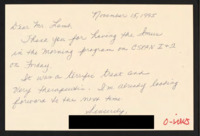 November 15, 1995
Dear Mr. Lamb,
Thank you for having the
in the morning program on C-SPAN I + II
on Friday.
It was a Great and
Very Therapeutic. I'm already looking
forward to the next time.
Sincerely,